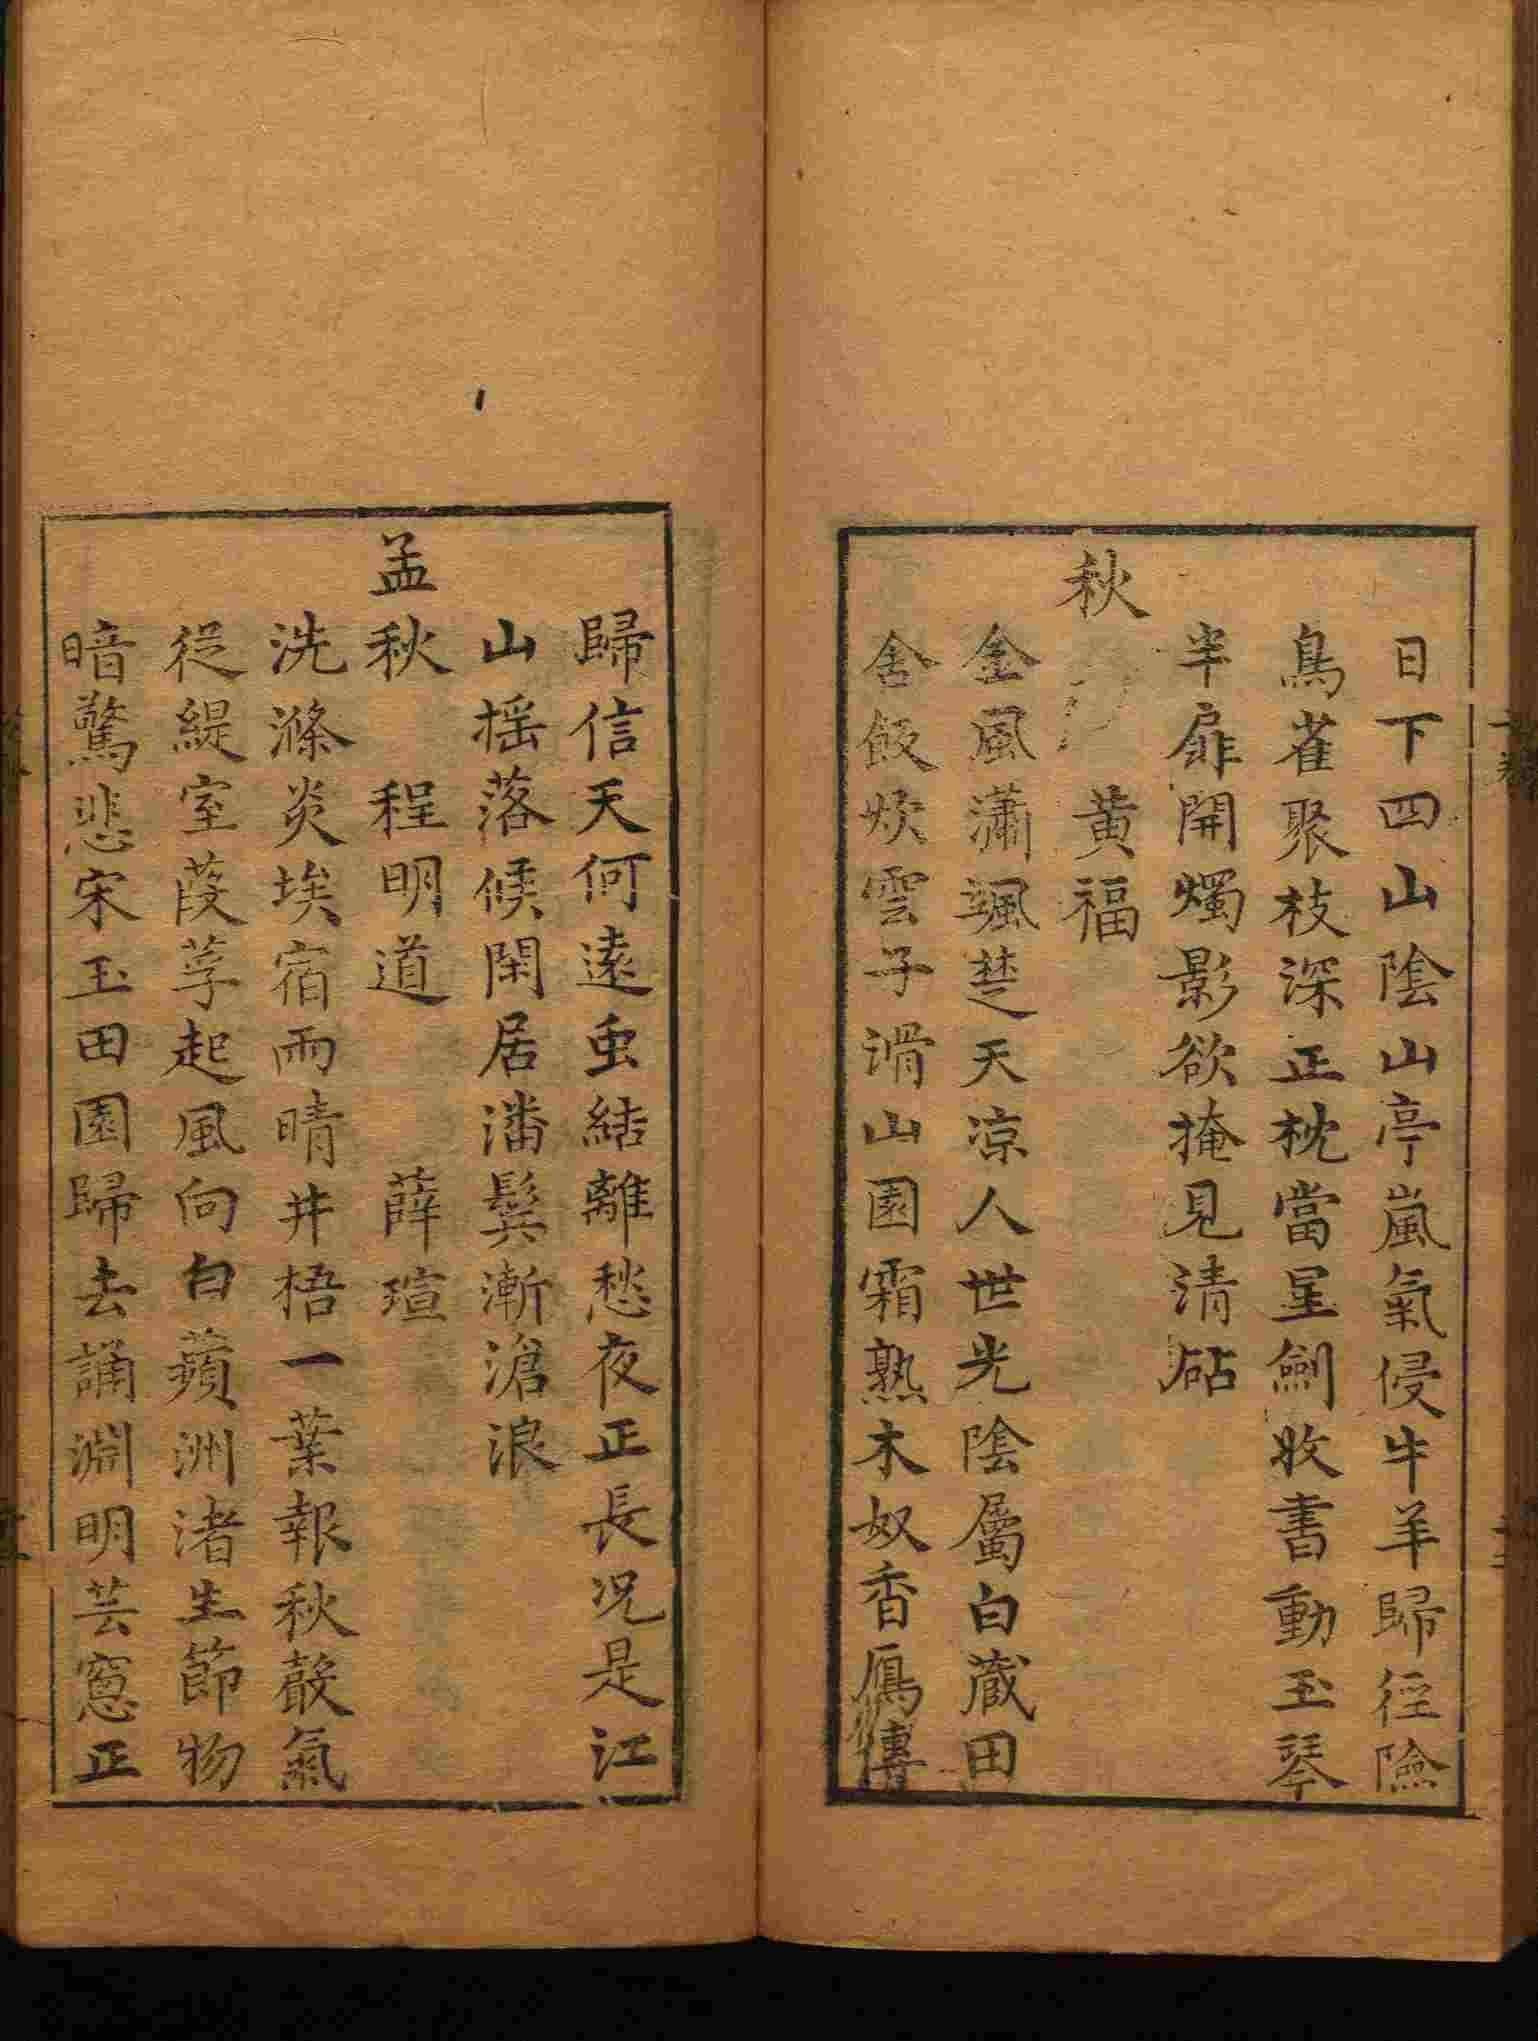 日下四山陰山亭嵐氣侵牛羊歸徑險
鳥雀聚枝深正枕當星劍收書動玉琴
半扉開燭影欲掩見清砧
秋　黃福
金風瀟颯楚天凉人世光陰屬白藏田
舍飯炊雲子滑山園霜熟木奴香鴈傳
歸信天何遠虫結離愁夜正長况是江
山揺落候閑居潘鬂漸滄浪
孟秋　程明道　薛瑄
洗滌炎埃宿雨晴井梧一葉報秋聲氣
從緹室葭莩起風向白蘋洲渚生節物
暗驚悲宋玉田園歸去誦淵明芸窓正